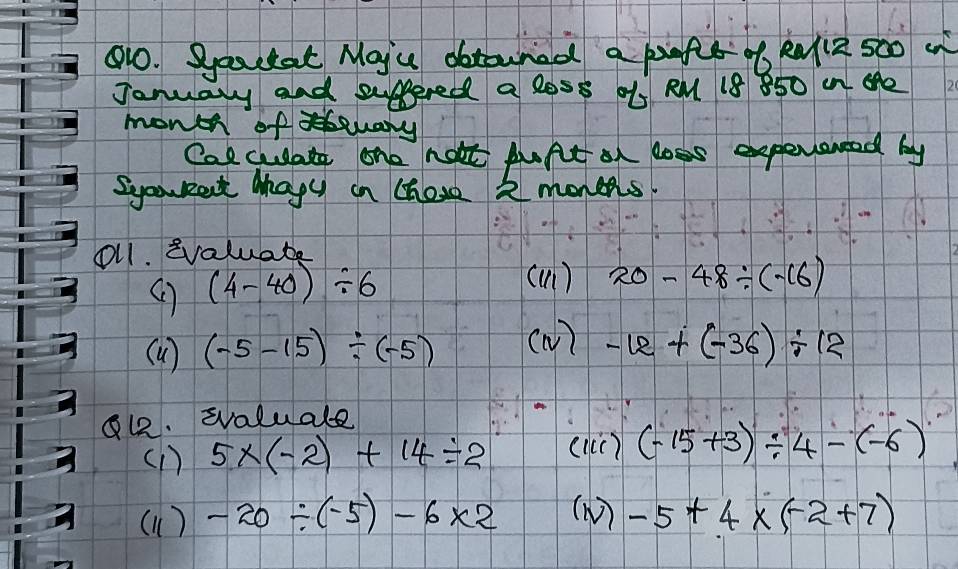 Q10. Syarikat Maju obtained a profit of RM12 500 in
January and suffered a loss of RM 18 850 in the
month of February
Calculate the nett profit or loss experienced by
Syarikat Maju in these 2 months.
Q11. Evaluate
(i) (4-40) ÷6
(iii) 20 - 48÷(-16)
(ii) (-5-15) ÷(-5)
(iv) -12 + (-36) ÷12
Q12. Evaluate
(i) 5×(-2) + 14÷2
(iii) (-15+3) ÷4-(-6)
(ii) -20 ÷(-5) -6×2
(iv) -5+4×(-2+7)